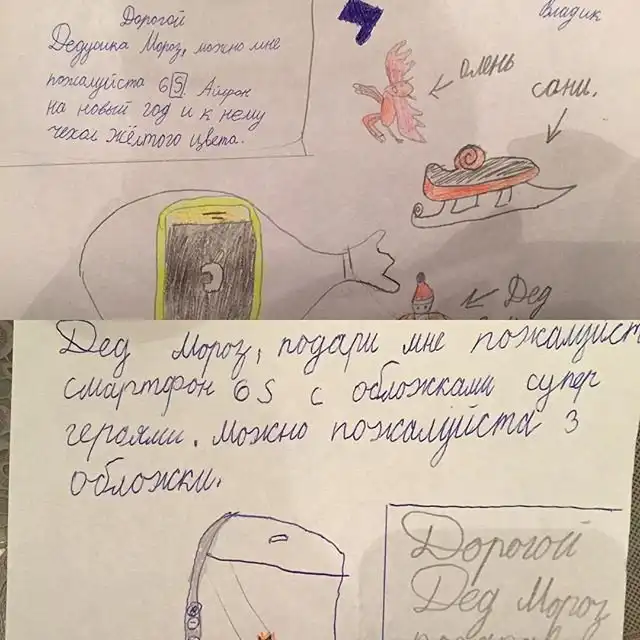 Дорогой
Дедушка Мороз, можно мне
пожалуйста 6S Айфон
на новый год и к нему
чехол жёлтого цвета.
Владик
олень
сани.
Дед
Дед Мороз, подари мне пожалуйст
смартфон 6S с обложками супер
героями. Можно пожалуйста 3
обложки.
Дорогой
Дед Мороз